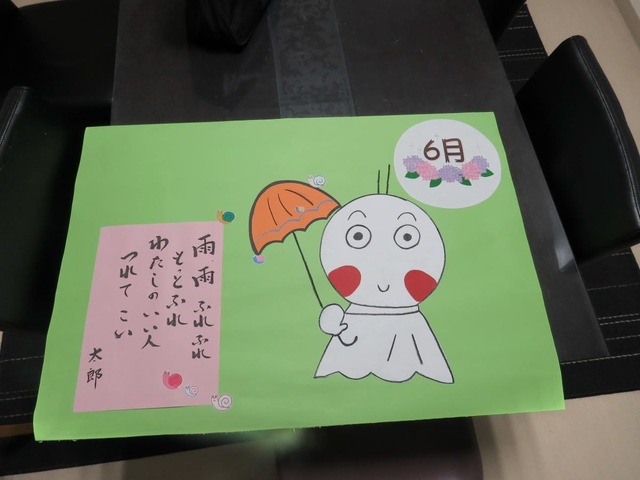 6月
雨雨ふれふれ
もっとふれ
わたしのいい人
つれてこい
太郎